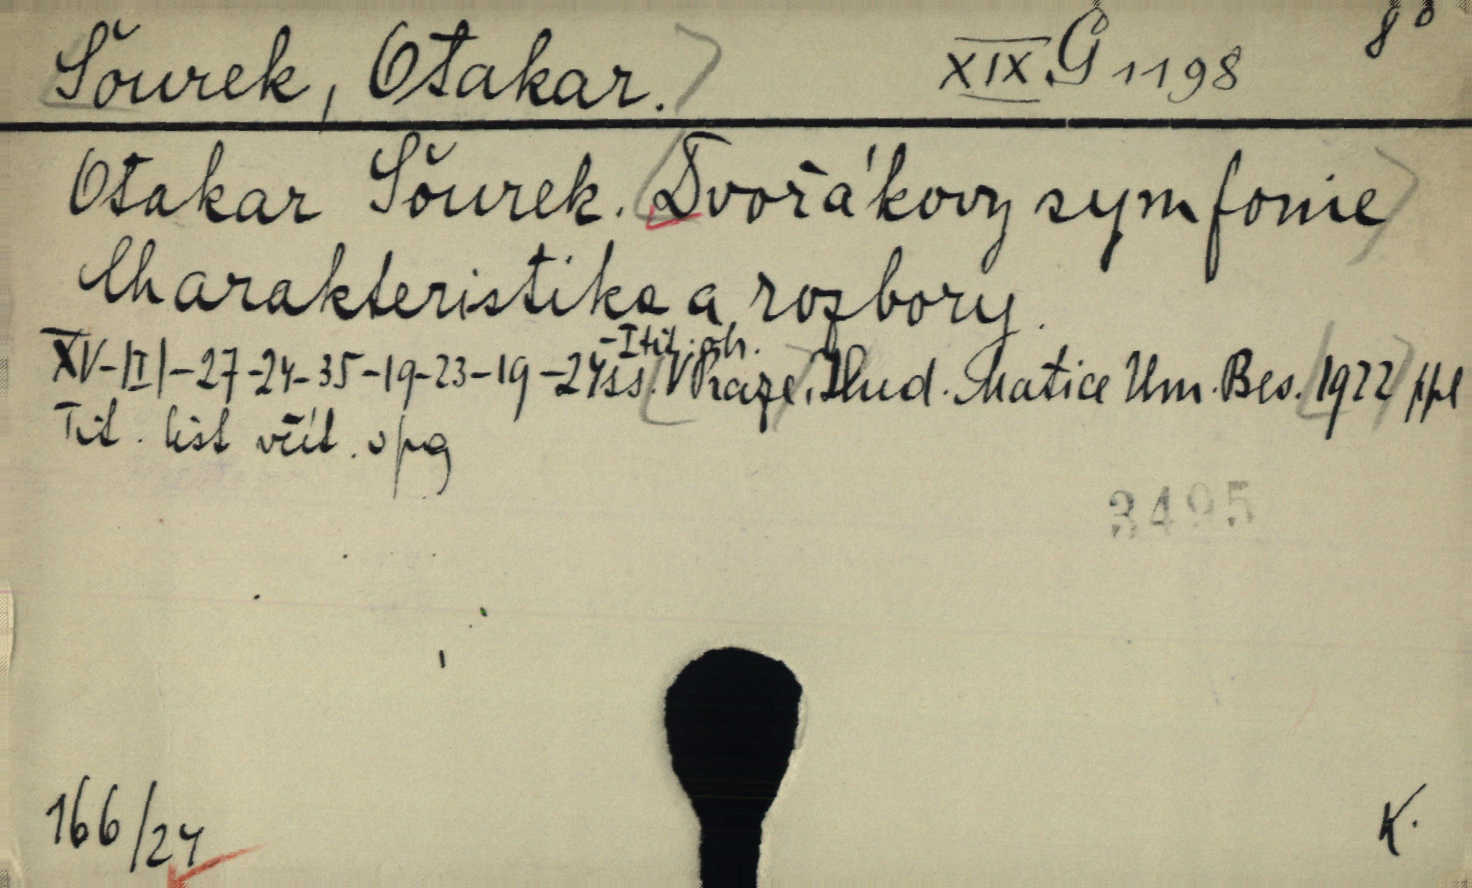 Šourek, Otakar.
XIX G 1198
8°
Otakar Šourek. Dvořákovy symfonie
Charakteristika a rozbory.
– I tit. obr.
XV-III-27-24-35-19-23-19-24 ss. V Praze, Hud. Matice Um. Bes. 1922 ppl
Tit. list včít. v pag
3495
166/24
K.